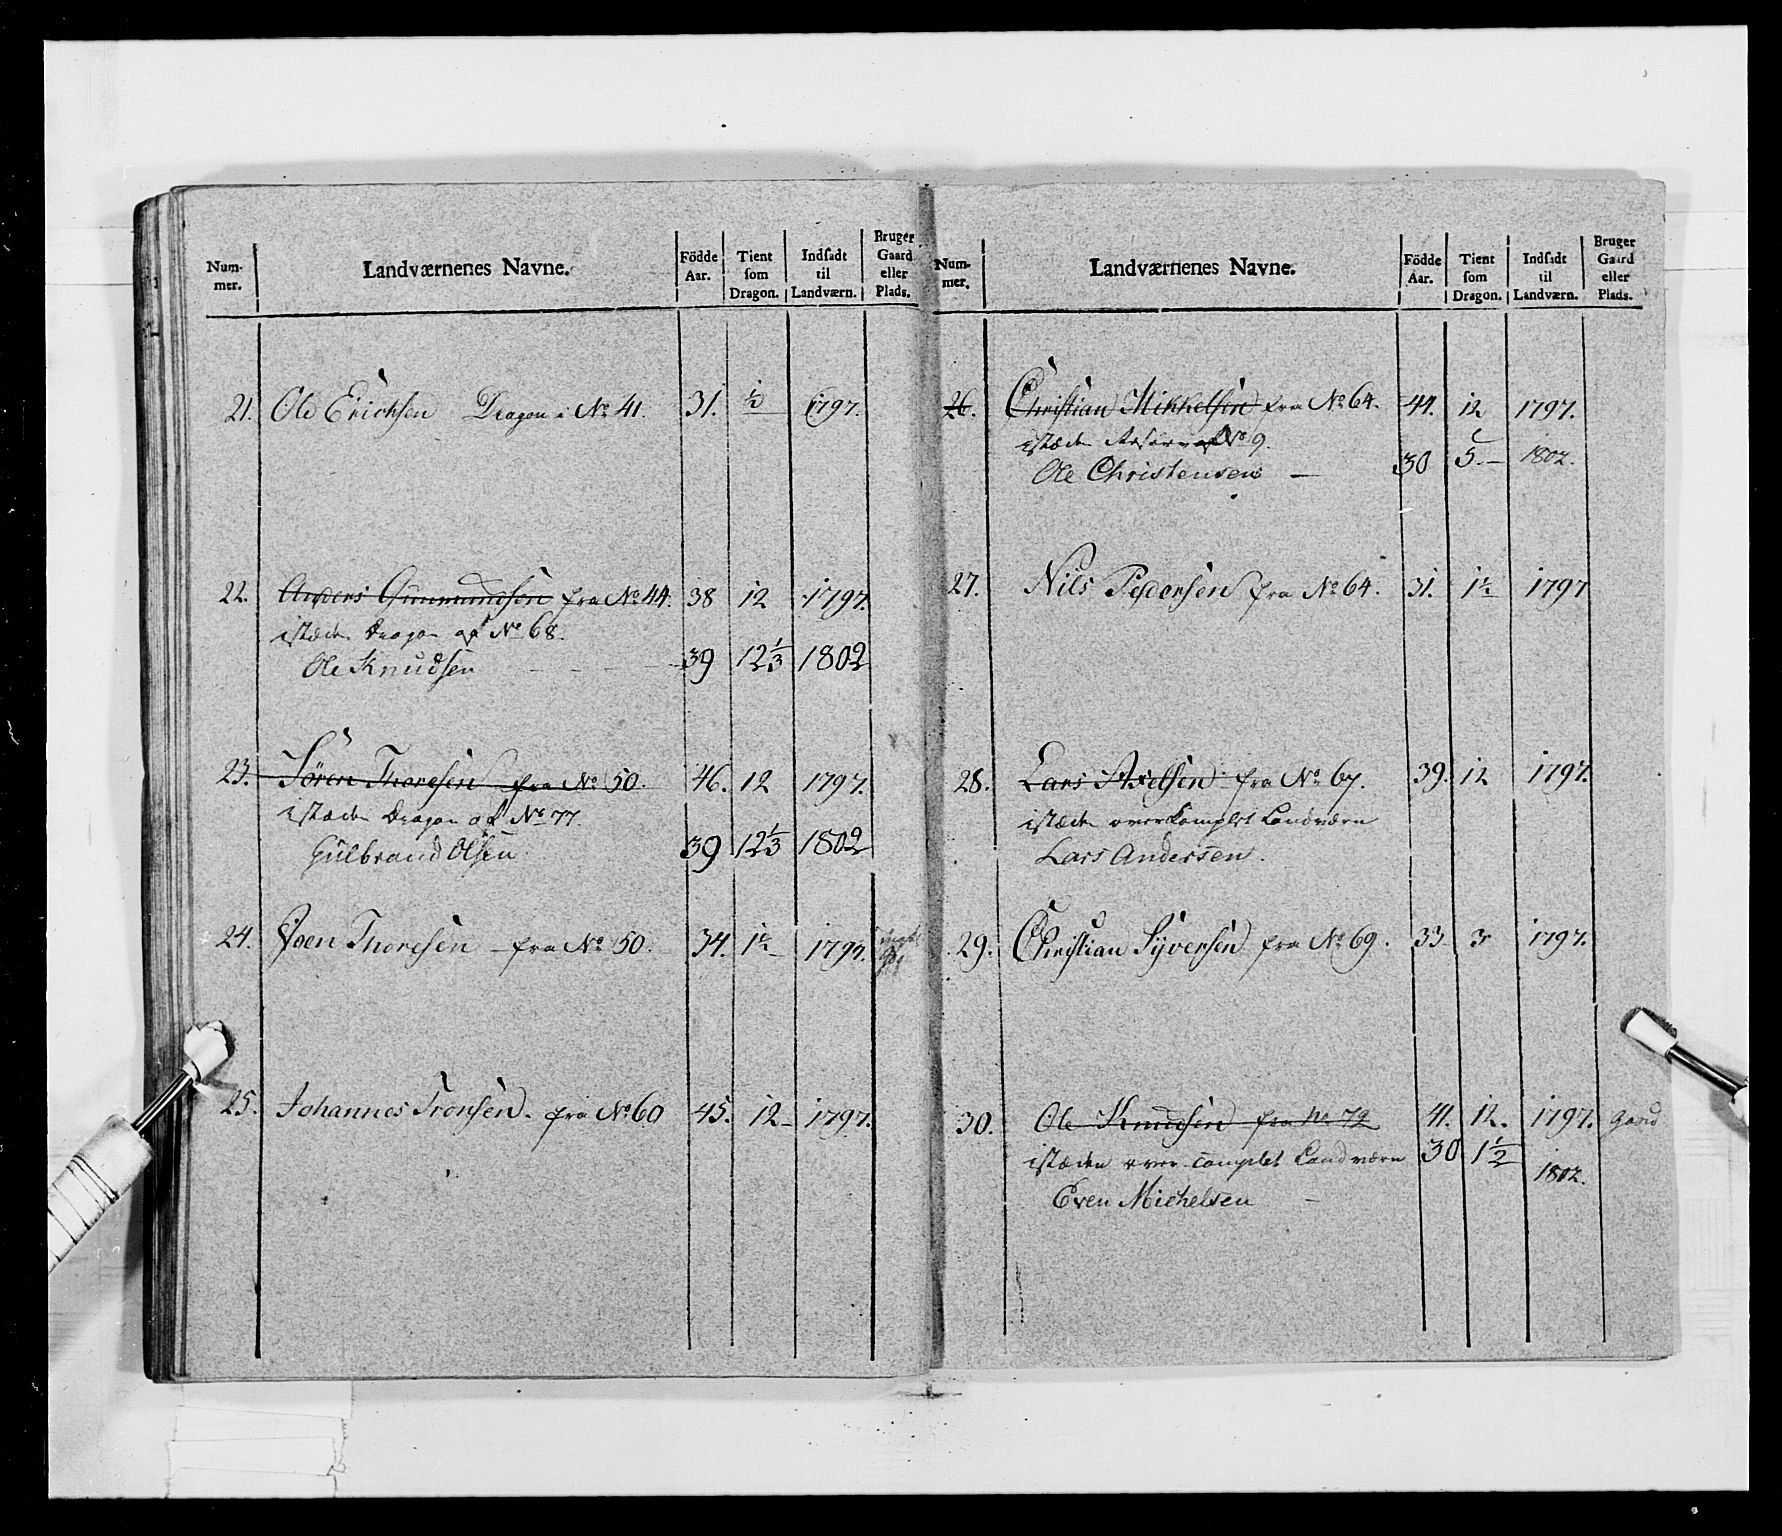 Num-mer. Landværnenes Navne. Födde Aar. Tient som Dragon. Indsadt til Landværn. Bruger Gaard eller Plads.
21. Ole Erichsen Dragon i No 41. 31. ½ 1797.
22. Anders Gunnundsen fra No 44. 38 12 1797.
istæden Dragon af No 68.
Ole Knudsen 39 12⅓ 1802
23. Sören Thoresen fra No 50. 46. 12 1797.
istæden Dragon af No 77.
Gulbrand Olsen 39 12⅓ 1802
24. Joen Thoresen fra No 50. 34. 1½ 1797.
25. Johannes Tronsen. fra No 60 45. 12 1797.
Num-mer. Landværnenes Navne. Födde Aar. Tient som Dragon. Indsadt til Landværn. Bruger Gaard eller Plads.
26. Christian Mikkelsen fra No 64. 44. 12 1797.
istæden Reserve af No 9.
Ole Christensen — 30 5. 1802.
27. Nils Pedersen fra No 64. 31. 1½ 1797
28. Lars Axelsen fra No 67. 39. 12 1797.
istæden overkomplet Landværn
Lars Andersen.
29. Christian Syversen fra No 69. 33 3 1797.
30. Ole Knudsen fra No 72 41. 12. 1797. Gaard
istæden over complet Landværn 30 1½ 1802.
Even Michelsen —